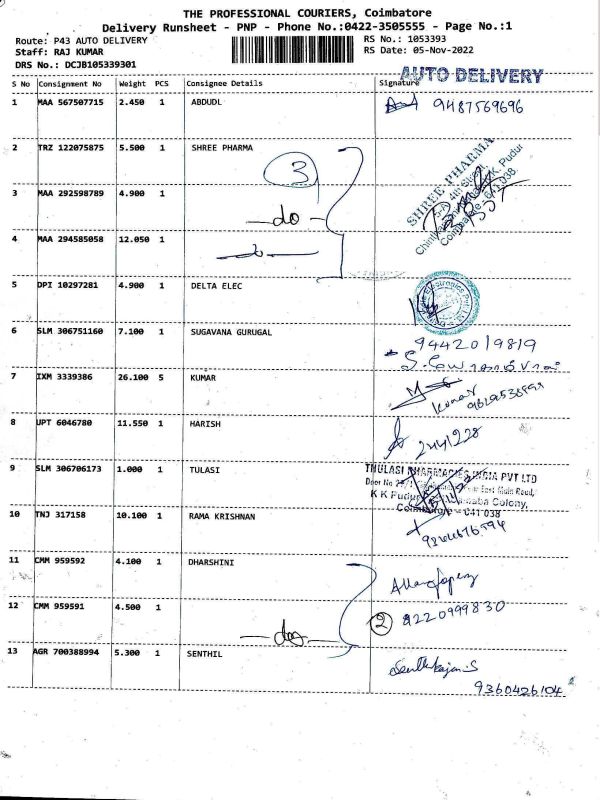 THE PROFESSIONAL COURIERS, Coimbatore
Delivery Runsheet - PNP - Phone No.:0422-3505555 - Page No.:1
Route: P43 AUTO DELIVERY
RS No.: 1053393
Staff: RAJ KUMAR
RS Date: 05-Nov-2022
DRS No.: DCJB105339301
AUTO DELIVERY
S No Consignment No Weight PCS Consignee Details Signature
1 MAA 567507715 2.450 1 ABDUDL 9487569696
2 TRZ 122075875 5.500 1 SHREE PHARMA
SHREE PHARMA
3
3 MAA 292598789 4.900 1
do
4 MAA 294585058 12.050 1
5 DPI 10297281 4.900 1 DELTA ELEC
6 SLM 306751160 7.100 1 SUGAVANA GURUGAL
9442019819
7 IXM 3339386 26.100 5 KUMAR
Kumar
8 UPT 6046780 11.550 1 HARISH
9 SLM 306706173 1.000 1 TULASI
THULASI PHARMACIES INDIA PVT LTD
East Main Road,
K K Pudur
Colony,
Coimbatore - 641 038
10 TNJ 317158 10.100 1 RAMA KRISHNAN
11 CMM 959592 4.100 1 DHARSHINI
12 CMM 959591 4.500 1
2 8220999830
do
13 AGR 700388994 5.300 1 SENTHIL
9360426104